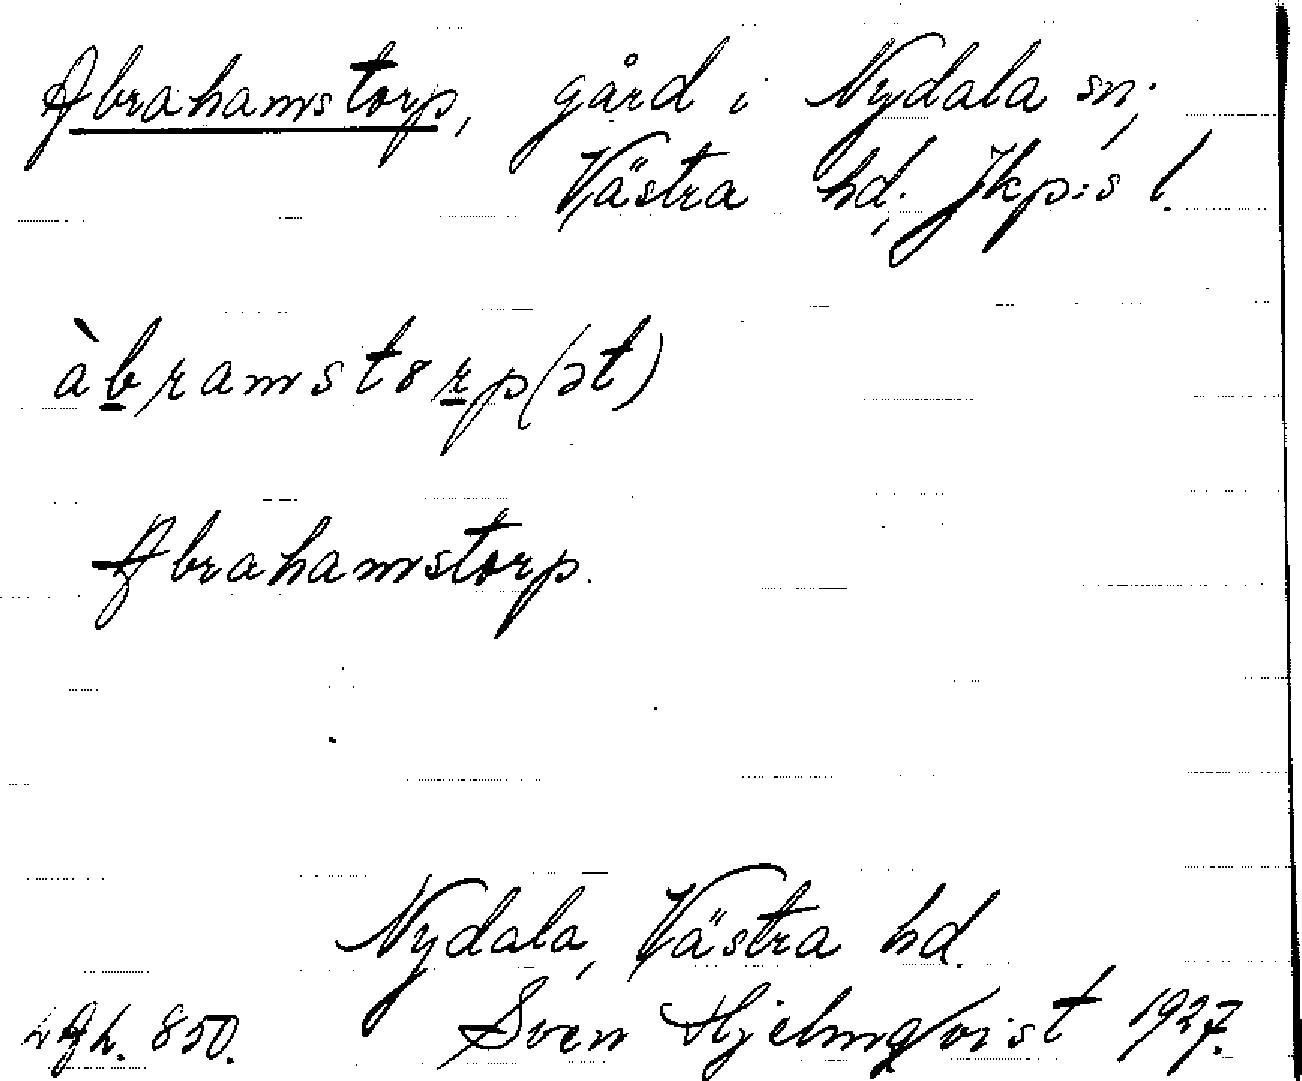 Abrahamstorp, gård i Nydala sn,
Västra hd, Jkp:s l.
àbramstorp(ət)
Abrahamstorp.
Nydala, Västra hd.
Sven Hjelmqvist 1927.
850.